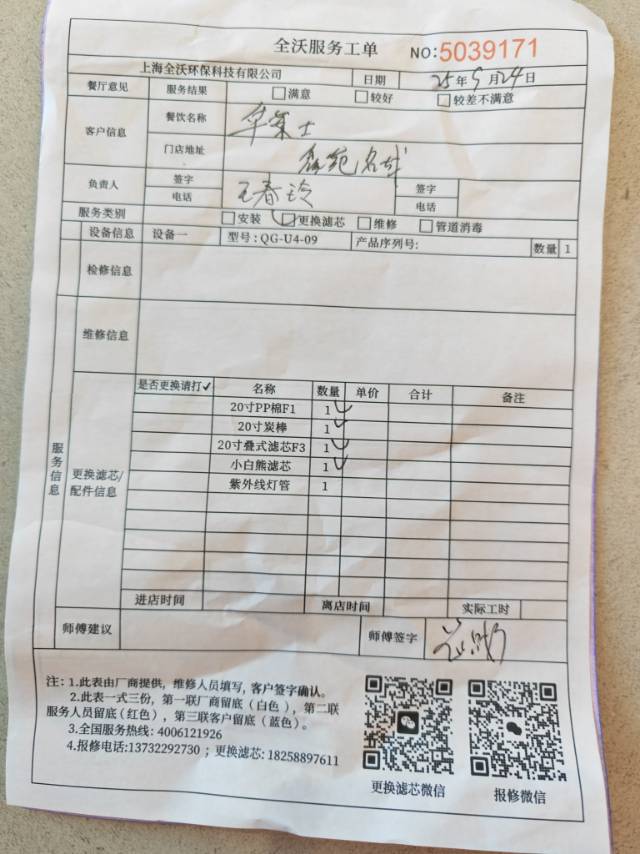 全沃服务工单 NO:5039171
上海全沃环保科技有限公司 日期 25年9月24日
餐厅意见 服务结果 □满意 □较好 □较差不满意
客户信息 餐饮名称 华莱士
门店地址 名城
负责人 签字 王春玲 签字
电话 电话
服务类别 □安装 □更换滤芯 □维修 □管道消毒
设备信息 设备一 型号:QG-U4-09 产品序列号: 数量 1
检修信息
维修信息
服务信息
更换滤芯/配件信息
是否更换请打✓ 名称 数量 单价 合计 备注
20寸PP棉F1 1 ✓
20寸炭棒 1 ✓
20寸叠式滤芯F3 1 ✓
小白熊滤芯 1 ✓
紫外线灯管 1
进店时间 离店时间 实际工时
师傅建议 师傅签字
注:1.此表由厂商提供，维修人员填写，客户签字确认。
2.此表一式三份，第一联厂商留底（白色），第二联
服务人员留底（红色），第三联客户留底（蓝色）。
3.全国服务热线: 4006121926
4.报修电话:13732292730 ; 更换滤芯: 18258897611
更换滤芯微信 报修微信